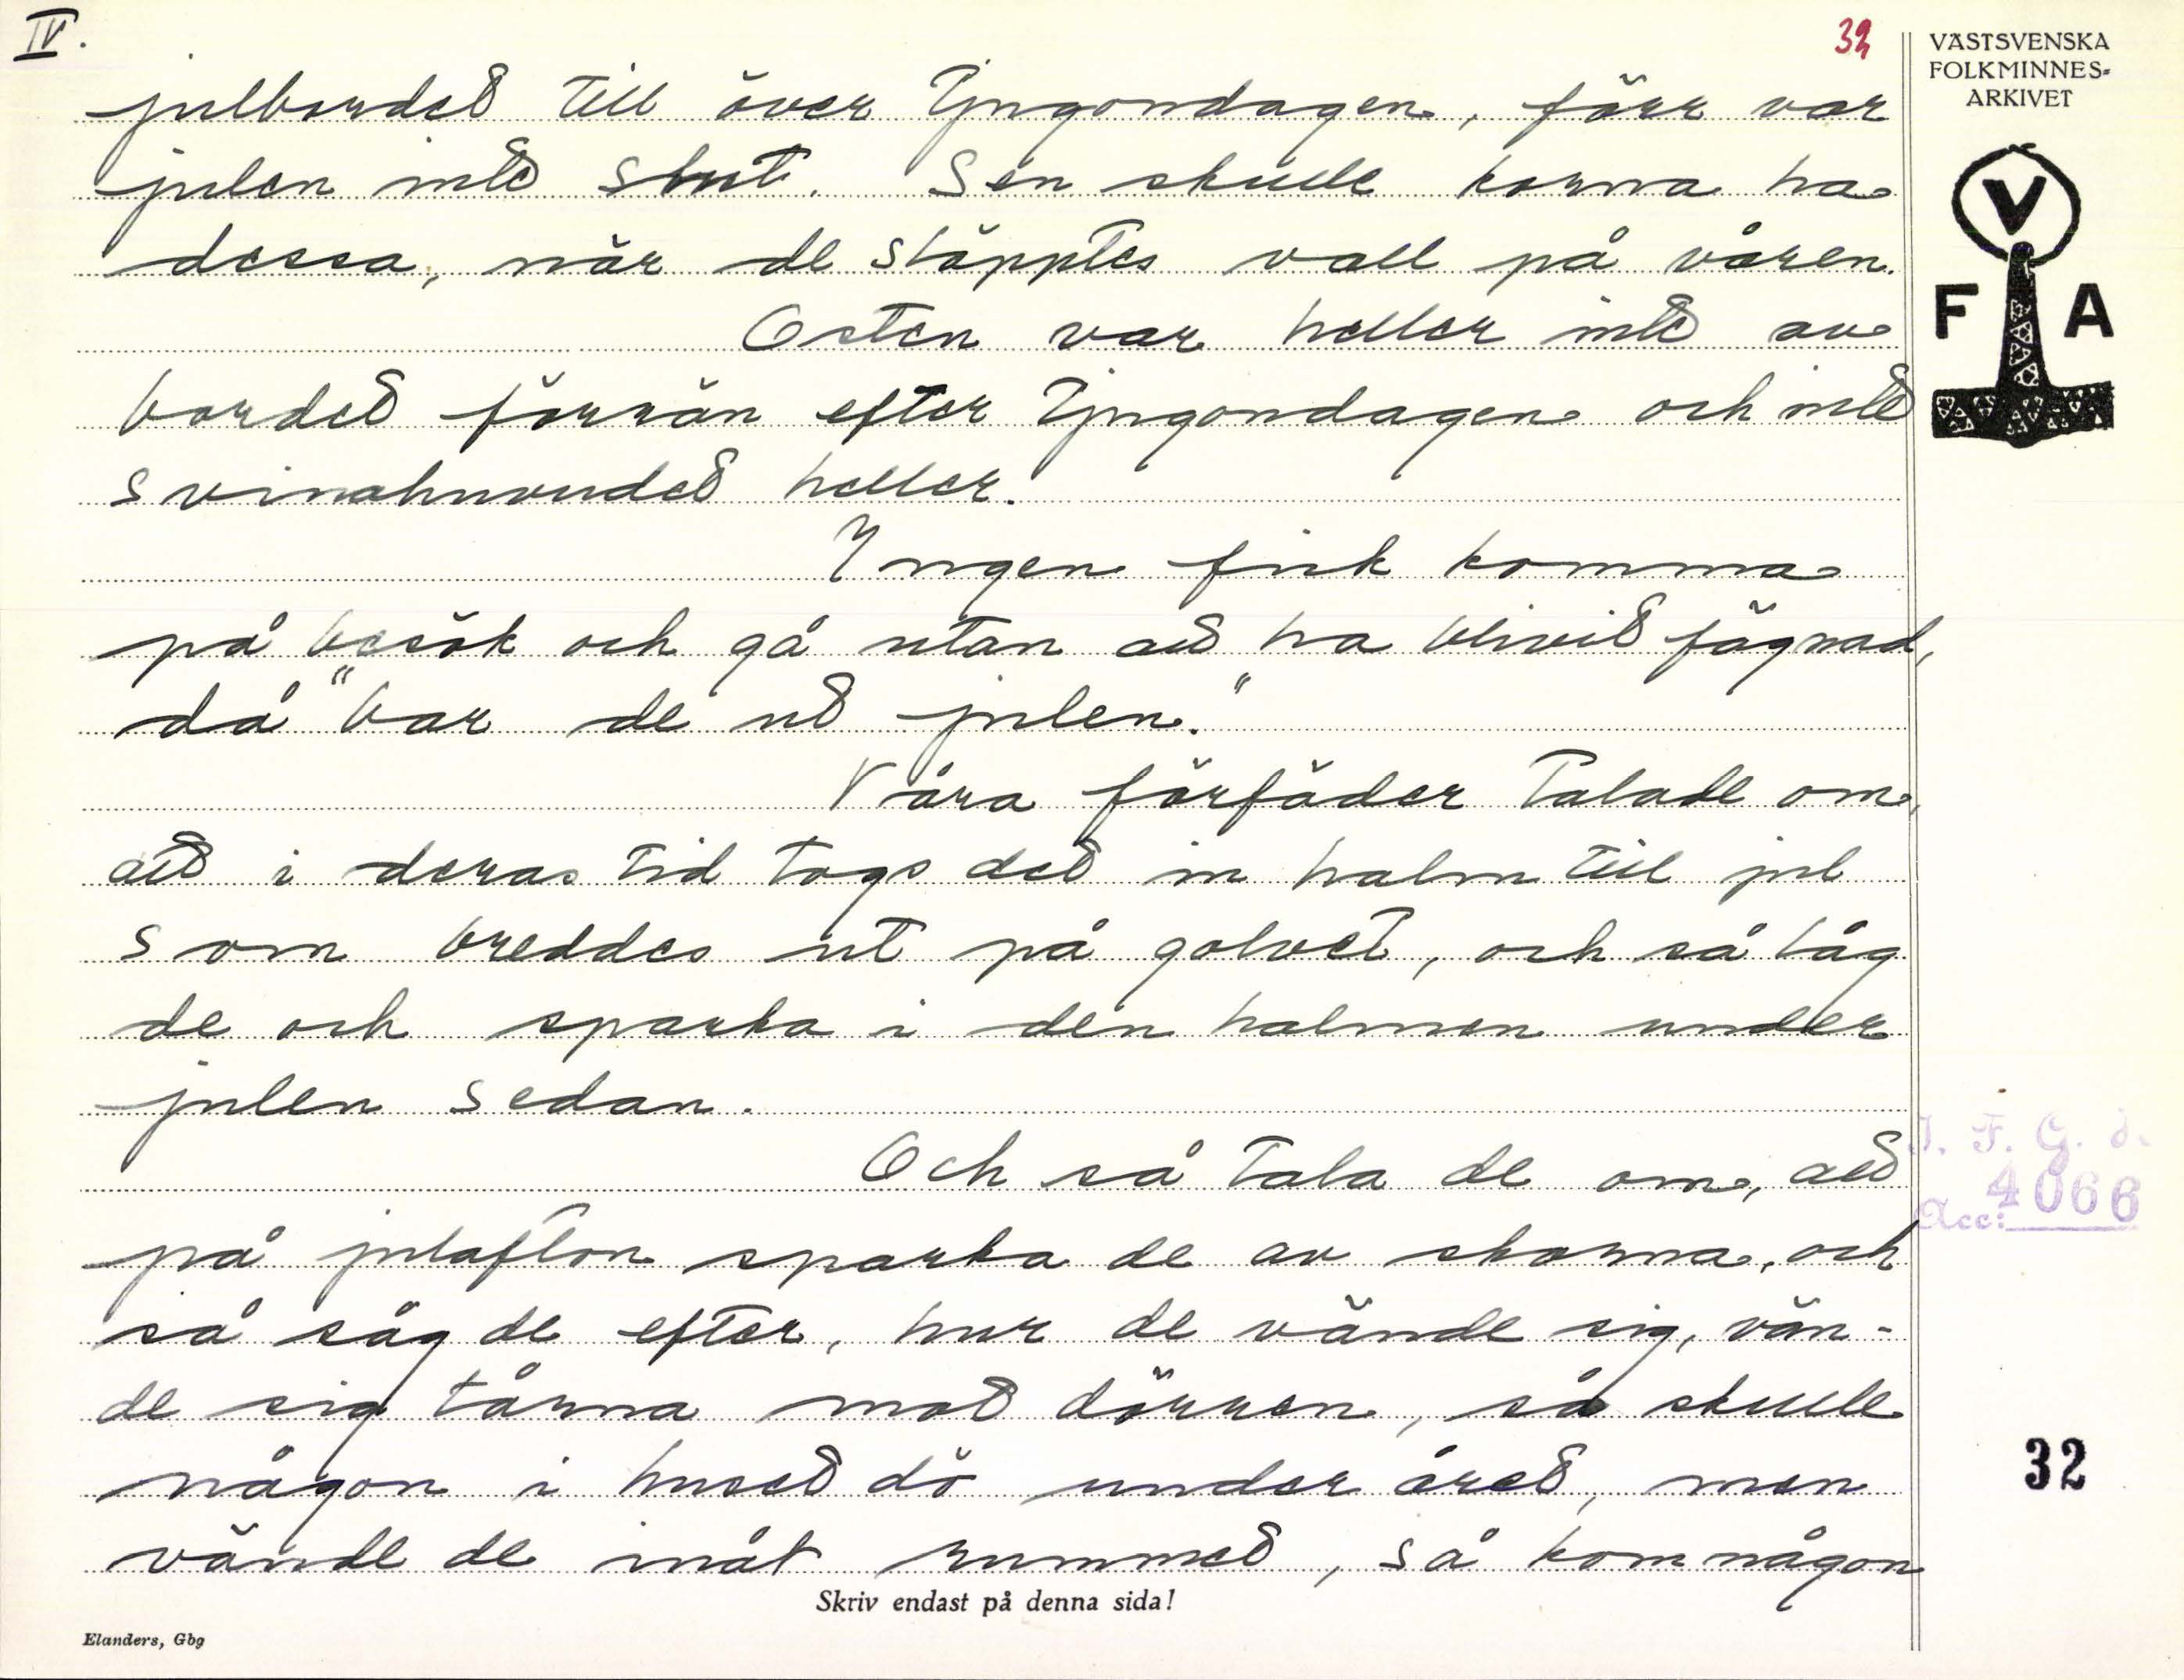 IV.
32
VÄSTSVENSKA
FOLKMINNES-
ARKIVET
V
F A
julbordet till över Tjugondagen, förr var
julen inte slut. Sen skulle korna ha
dessa, när de släpptes vall på våren.
Osten var heller inte av
bordet förrän efter Tjugondagen och inte
svinahuvudet heller.
Ingen fick komma
på besök och gå utan att ha blivit fägnad,
då "bar de ut julen."
Våra förfäder talade om,
att i deras tid togs det in halm till jul
som breddes ut på golvet, och så låg
de och sparka i den halmen under
julen sedan.
Och så tala de om, att
på julafton sparka de av skorna, och
så såg de efter, hur de vände sig, vän-
de sig tårna mot dörren, så skulle
någon i huset dö under året, men
vände de inåt rummet, så kom någon
I. F. G. s.
Acc: 4066
32
Skriv endast på denna sida!
Elanders, Gbg